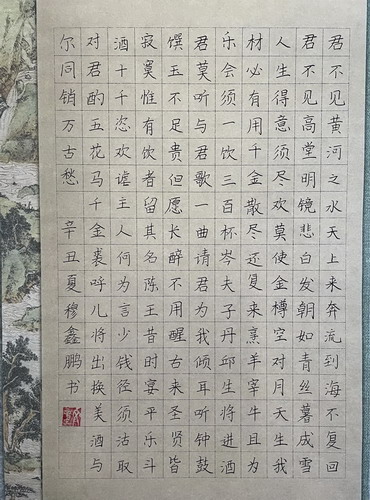 君不见黄河之水天上来奔流到海不复回
君不见高堂明镜悲白发朝如青丝暮成雪
人生得意须尽欢莫使金樽空对月天生我
材必有用千金散尽还复来烹羊宰牛且为
乐会须一饮三百杯岑夫子丹邱生将进酒
君莫听与君歌一曲请君为我倾耳听钟鼓
馔玉不足贵但愿长醉不用醒古来圣贤皆
寂寞惟有饮者留其名陈王昔时宴平乐斗
酒十千恣欢谑主人何为言少钱径须沽取
对君酌五花马千金裘呼儿将出换美酒与
尔同销万古愁 辛丑夏穆鑫鹏书